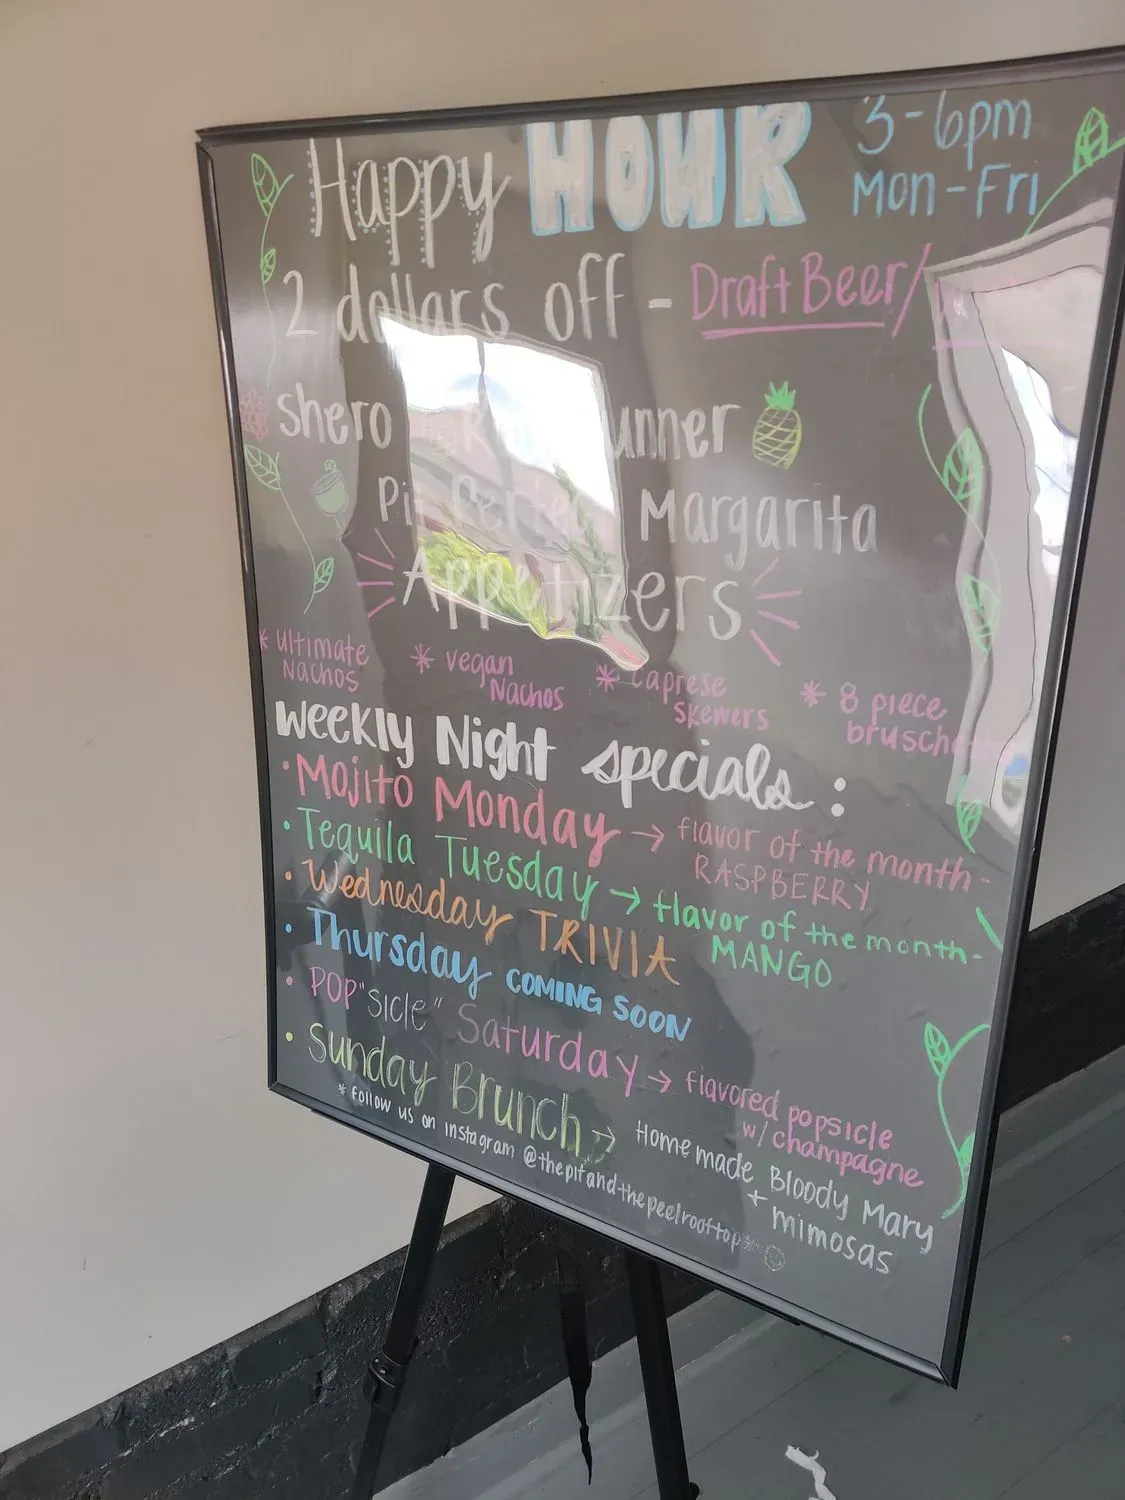 Happy HOUR 3-6pm
Mon-Fri
2 dollars off - Draft Beer/
shero unner
Pit Perfect Margarita
Appetizers
* ultimate Nachos * vegan Nachos * caprese skewers * 8 piece
weekly Night specials:
• Mojito Monday → flavor of the month-
RASPBERRY
• Tequila Tuesday → flavor of the month-
MANGO
• Wednesday TRIVIA
• Thursday COMING SOON
• POP"sicle" Saturday → flavored popsicle
w/ champagne
• Sunday Brunch → Homemade Bloody Mary
+ mimosas
* follow us on instagram @thepitandthepeelrooftop *